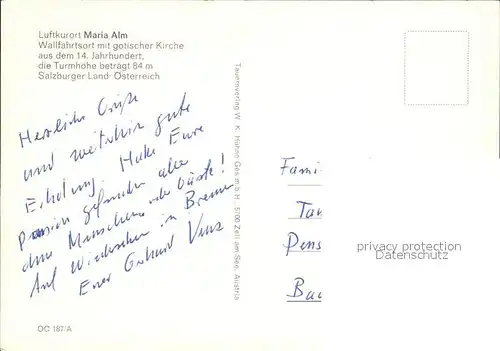 Luftkurort Maria Alm
Wallfahrtsort mit gotischer Kirche
aus dem 14. Jahrhundert,
die Turmhöhe beträgt 84 m
Salzburger Land-Österreich
Herzliche Grüße
und weiterhin gute
Erholung. Habe Eure
Pension gefunden aber
ohne Menschen oder Gäste!
Auf Wiedersehen in Bremen
Euer Gerhard
Tauernverlag W. K. Hühne Ges.m.b.H., 5700 Zell am See, Austria
Fami
Tau
Pens
Ba
privacy protection
Datenschutz
OC 187/A